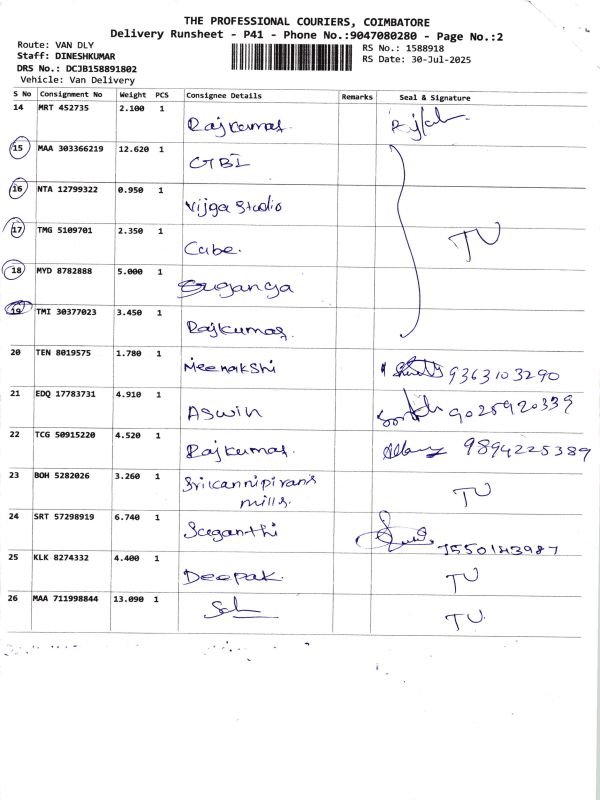 THE PROFESSIONAL COURIERS, COIMBATORE
Delivery Runsheet - P41 - Phone No.:9047080280 - Page No.:2
Route: VAN DLY
Staff: DINESHKUMAR
DRS No.: DCJB158891802
Vehicle: Van Delivery
RS No.: 1588918
RS Date: 30-Jul-2025
S No Consignment No Weight PCS Consignee Details Remarks Seal & Signature
14 MRT 452735 2.100 1 Rajkumar.
15 MAA 303366219 12.620 1 GBI
16 NTA 12799322 0.950 1 Vijga Studio
17 TMG 5109701 2.350 1 Cube. TU
18 MYD 8782888 5.000 1 Suganga
19 TMI 30377023 3.450 1 Rajkumar.
20 TEN 8019575 1.780 1 Meenakshi 9363103290
21 EDQ 17783731 4.910 1 Aswin 9025920339
22 TCG 50915220 4.520 1 Rajkumar. 9894225389
23 BOH 5282026 3.260 1 Srikannipiran's mills. TU
24 SRT 57298919 6.740 1 Suganthi 7550143987
25 KLK 8274332 4.400 1 Deepak. TU
26 MAA 711998844 13.090 1 TU